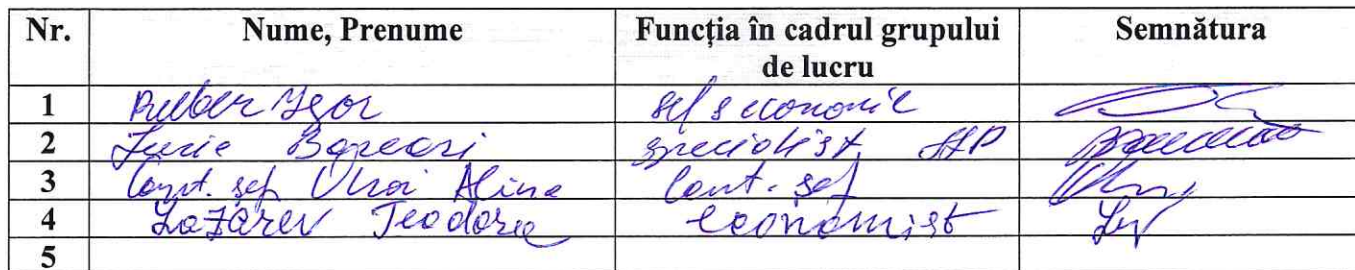 Nr. Nume, Prenume Funcția în cadrul grupului de lucru Semnătura
1 Igor șef s economie
2 Iurie specialist AP
3 Cont. șef Alina Cont. șef
4 Lazarev Teodora economist
5